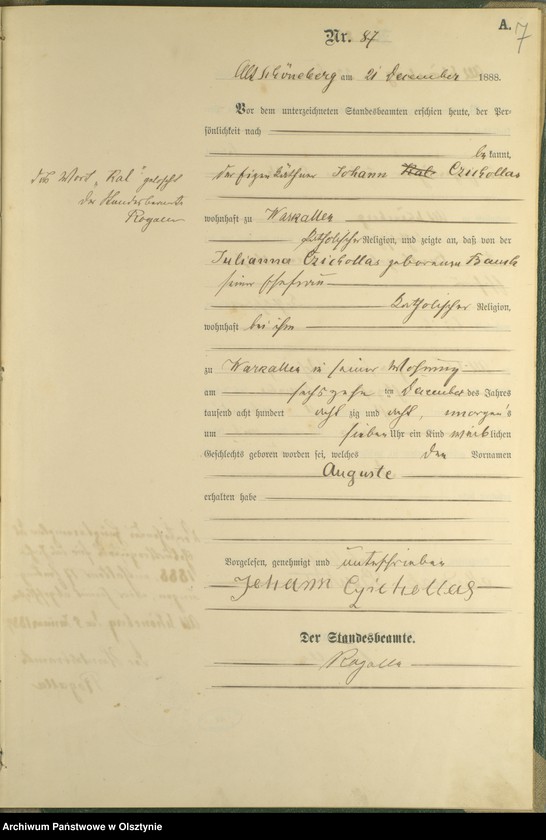 A.
7
Nr. 87
Alt Schöneberg am 21 December 1888.
Vor dem unterzeichneten Standesbeamten erschien heute, der Per-
sönlichkeit nach
bekannt,
der Eigenkäthner Johann Kal Czichollas
das Wort "Kal" gelöscht
Der Standesbeamte
Rogalla
wohnhaft zu Warkallen
katholischer Religion, und zeigte an, daß von der
Julianna Czichollas geborenen
seiner Ehefrau
katholischer Religion,
wohnhaft bei ihm
zu Warkallen in seiner Wohnung
am sechszehn ten December des Jahres
tausend acht hundert acht zig und acht, morgens
um sieben Uhr ein Kind weiblichen
Geschlechts geboren worden sei, welches den Vornamen
Auguste
erhalten habe
Vorgelesen, genehmigt und unterschrieben
Johann Czichollas
Der Standesbeamte.
Rogalla
Archiwum Państwowe w Olsztynie